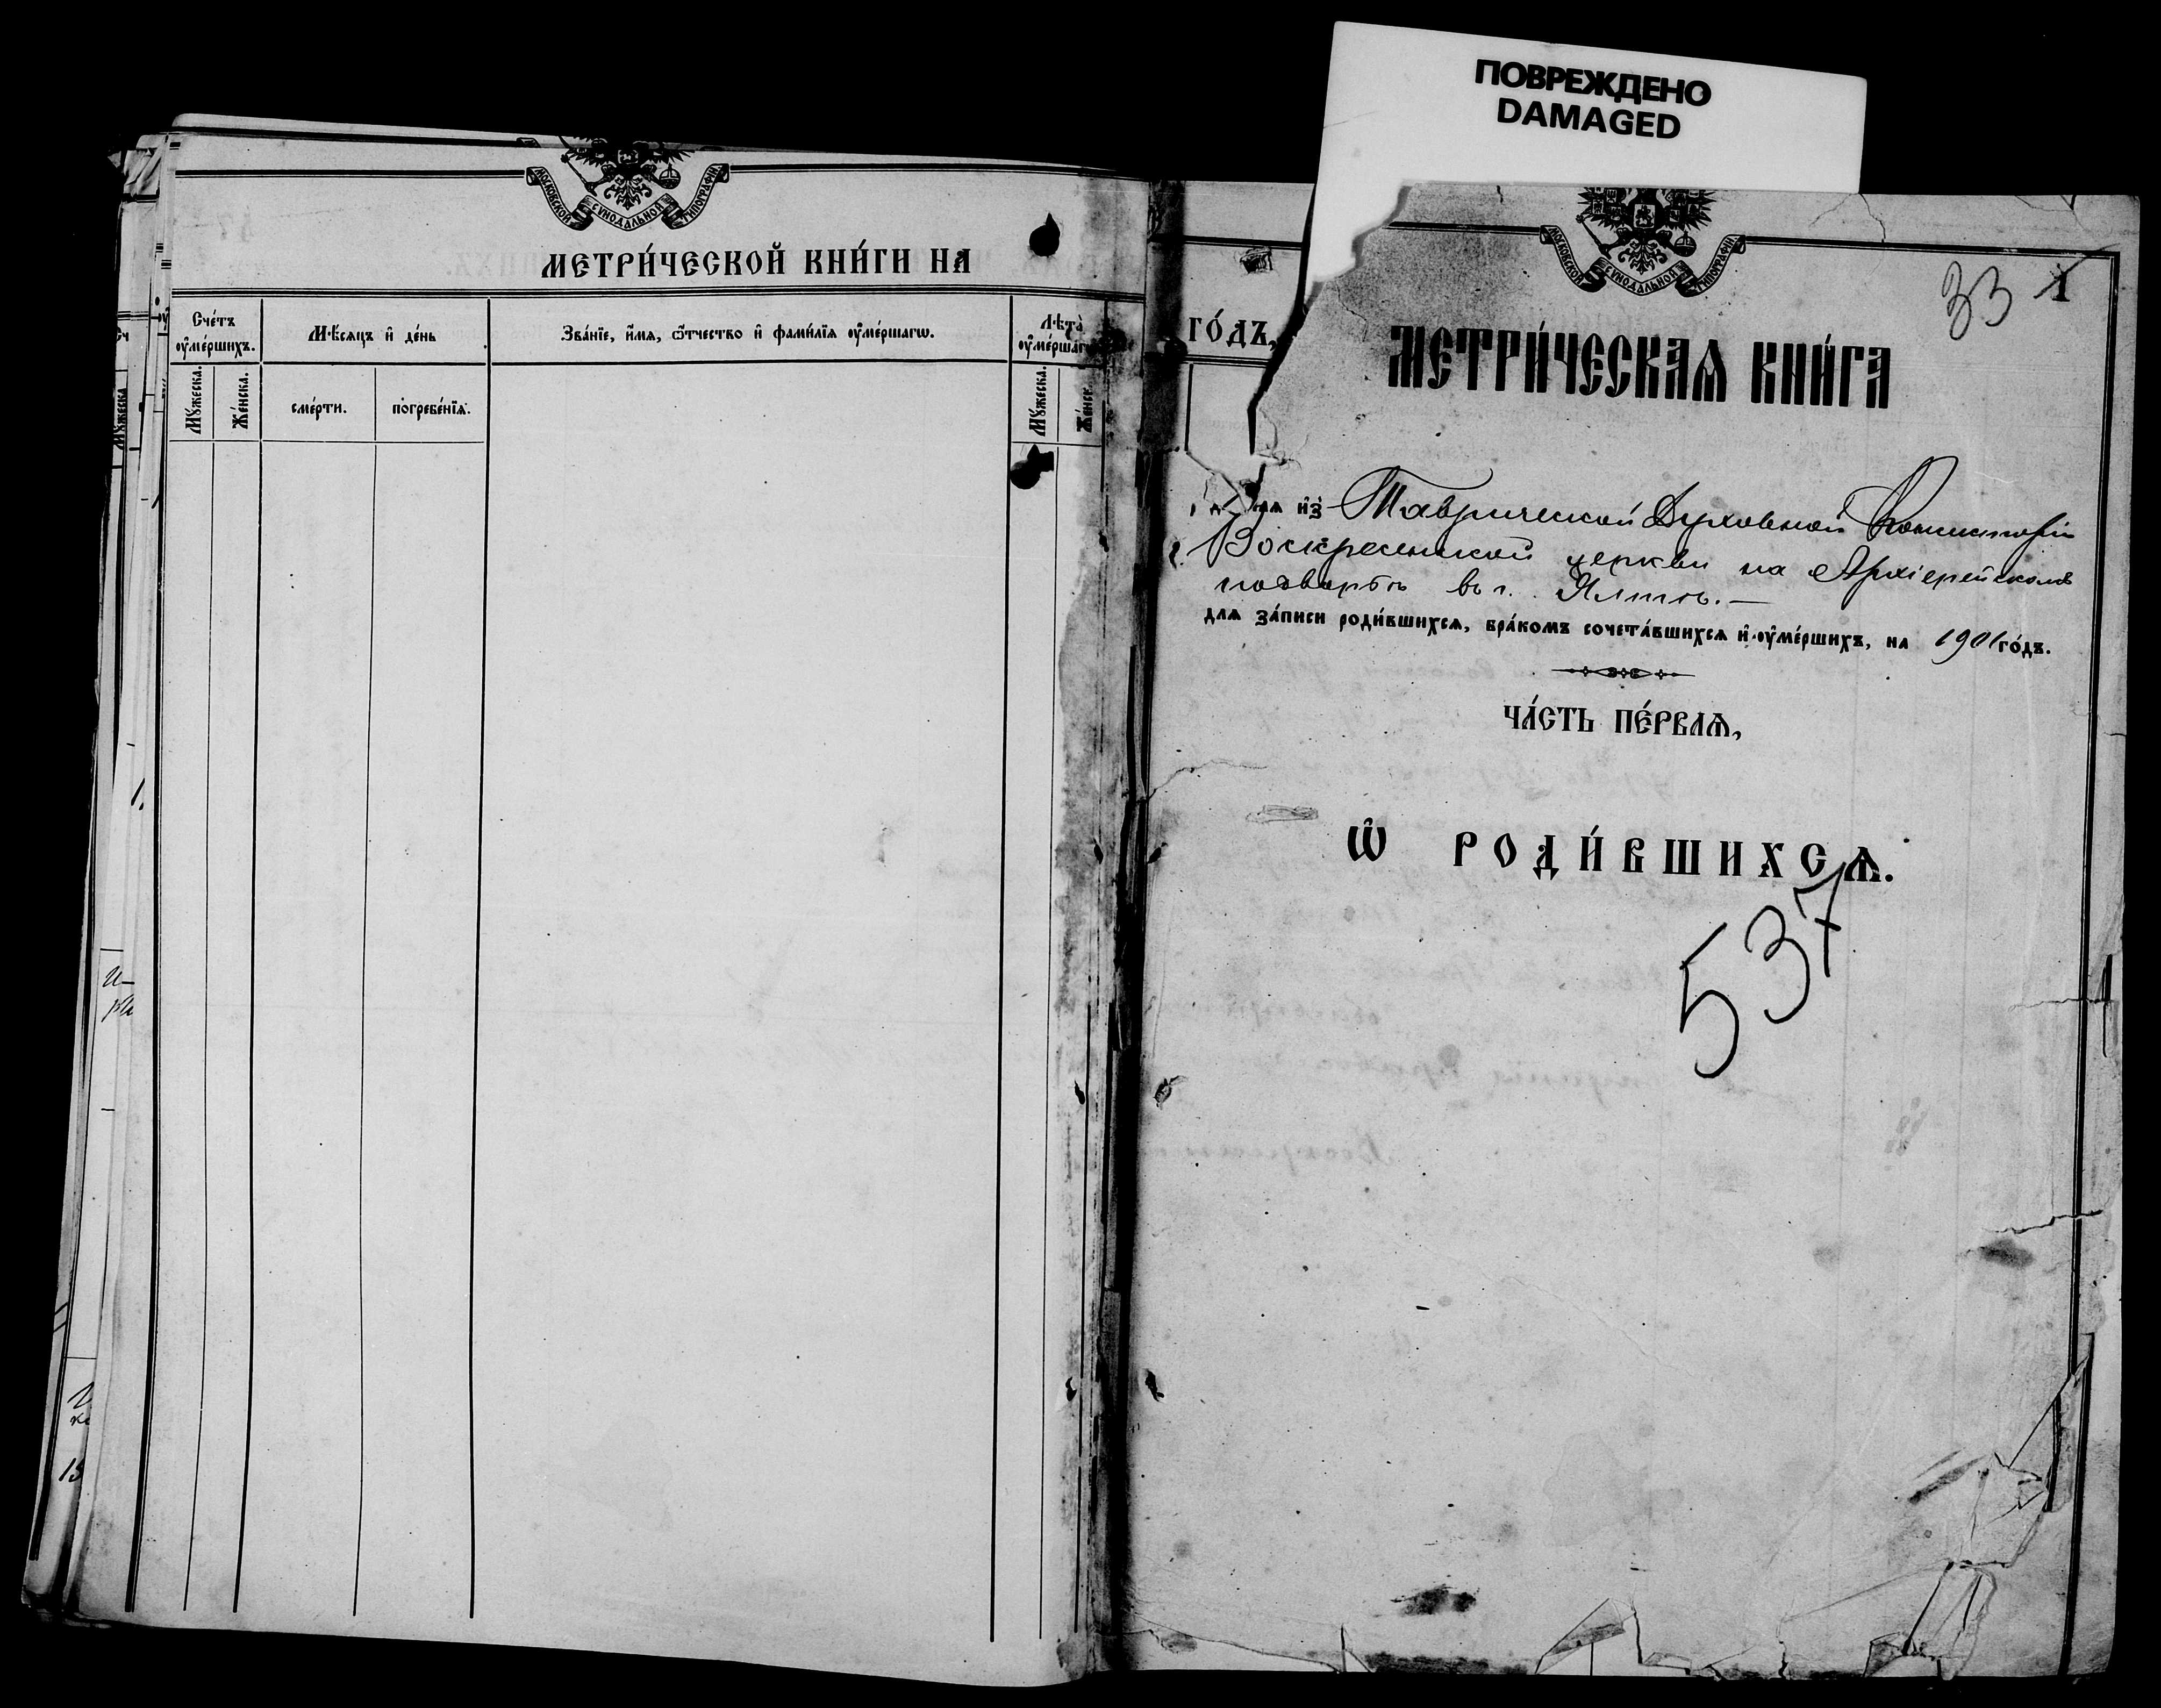 ПОВРЕЖДЕНО
DAMAGED
МОСКОВСКОЙ СѴНОДАЛЬНОЙ ТИПОГРАФІИ
МЕТРИ́ЧЕСКОЙ КНИ́ГИ НА
Сче́тъ ᲂу҆ме́ршихъ.
Мѣ́сѧцъ и҆ де́нь
Зва́нїе, и҆́мѧ, ѻ҆́тчество и҆ фамѝлїѧ ᲂу҆ме́ршагѡ.
Лѣ́та ᲂу҆ме́ршаг
Мꙋ́жеска.
Же́нска.
сме́рти.
погребе́нїѧ.
Мꙋ́жеска.
Же́нск
ГО́ДЪ,
МОСКОВСКОЙ СѴНОДАЛЬНОЙ ТИПОГРАФІИ
33 1
МЕТРИ́ЧЕСКАѦ КНИ́ГА
и҆з̾ Таврической Духовной Консисторіи
Воскресенской церкви на Архіерейскомъ
подворьѣ въ г. Ялтѣ. —
длѧ за́писи роди́вшихсѧ, бра́комъ сочета́вшихсѧ и҆ ᲂу҆ме́ршихъ, на 1901 го́дъ.
ЧА́СТЬ ПЕ́РВАѦ,
Ѽ РОДИ́ВШИХСѦ.
537